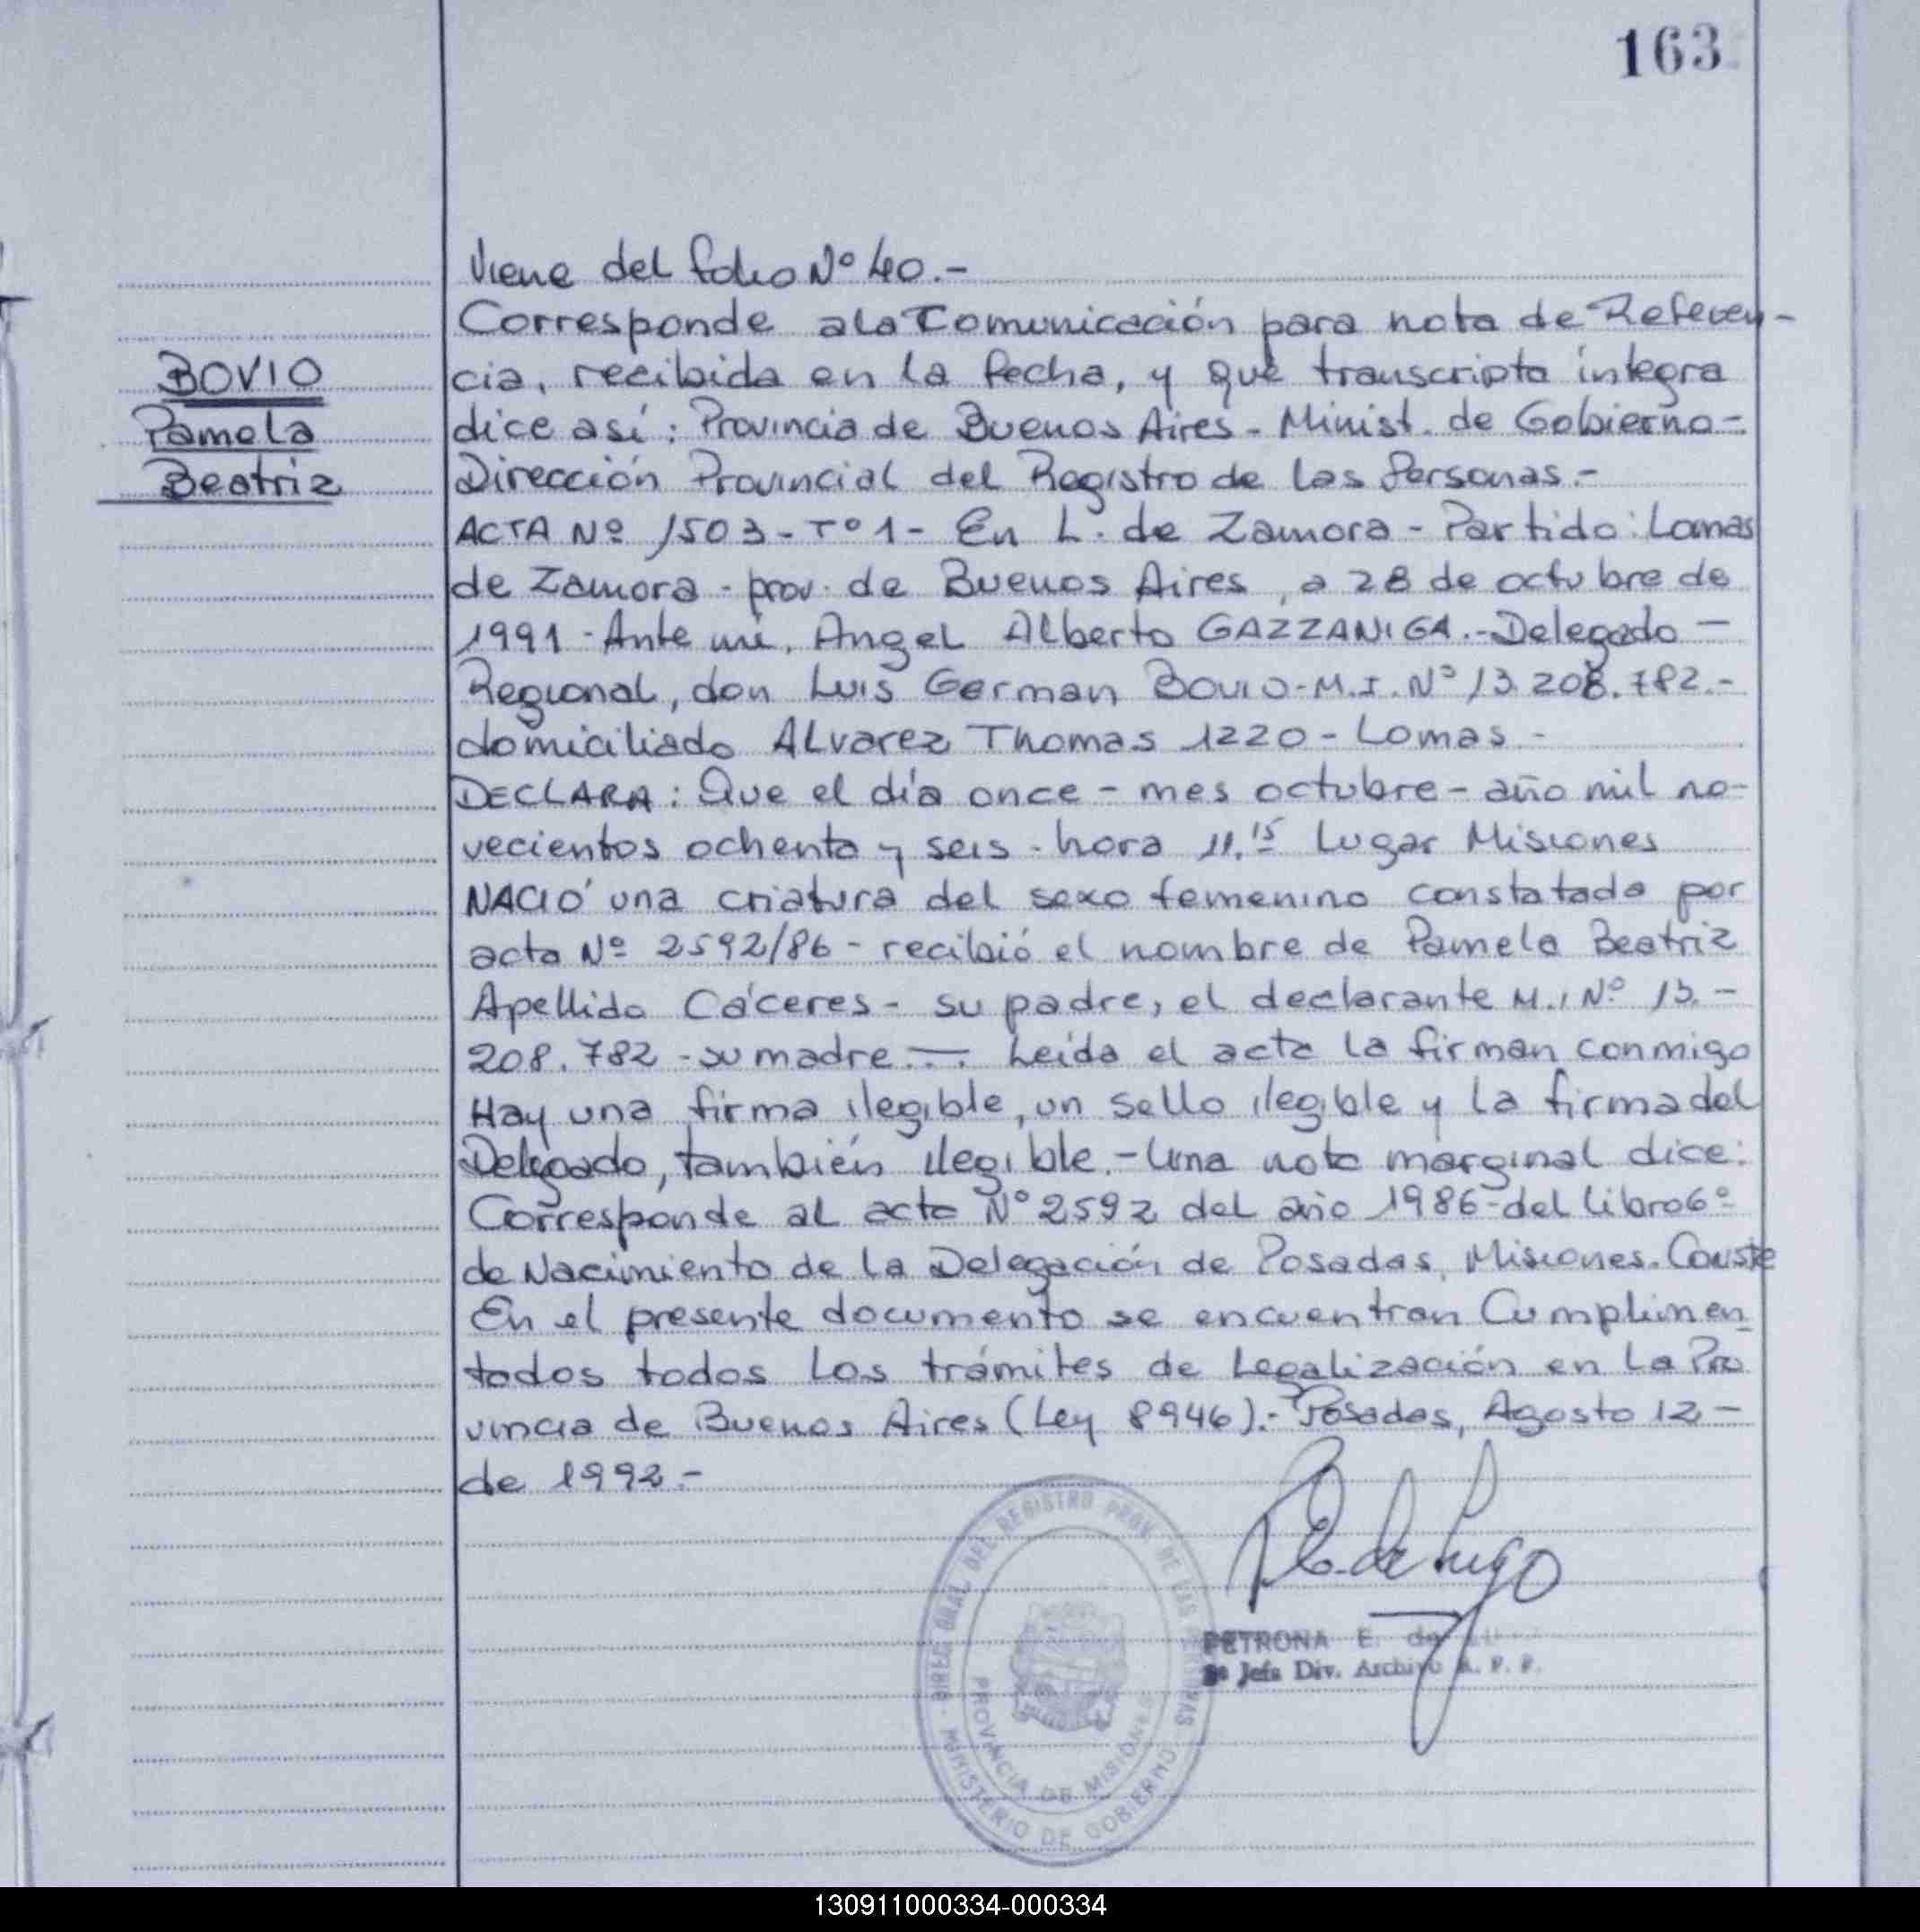 163
Viene del folio Nº 40.-
Corresponde a la Comunicación para nota de Referen-
BOVIO
Pamela
Beatriz
cia, recibida en la fecha, y que transcripta íntegra
dice así: Provincia de Buenos Aires - Minist. de Gobierno-
Dirección Provincial del Registro de las Personas.-
ACTA Nº 1503 - Tº 1 - En L. de Zamora - Partido: Lomas
de Zamora - prov. de Buenos Aires, a 28 de octubre de
1991 - Ante mí, Angel Alberto GAZZANIGA.- Delegado -
Regional, don Luis German BOVIO - M.I. Nº 13.208.782.-
domiciliado Alvarez Thomas 1220 - Lomas -
DECLARA: Que el día once - mes octubre - año mil no-
vecientos ochenta y seis - hora 11.15 lugar Misiones
NACIÓ una criatura del sexo femenino constatado por
acta Nº 2592/86 - recibió el nombre de Pamela Beatriz
Apellido Cáceres - su padre, el declarante M.I Nº 13.-
208.782 - su madre —. Leída el acta la firman conmigo
Hay una firma ilegible, un sello ilegible y la firma del
Delegado, también ilegible.- Una nota marginal dice:
Corresponde al acta Nº 2592 del año 1986 - del libro 6º
de Nacimiento de la Delegación de Posadas, Misiones. Conste
En el presente documento se encuentran Cumplimen-
tados todos los trámites de Legalización en la Pro
vincia de Buenos Aires (Ley 8946).- Posadas, Agosto 12 -
de 1992.-
DIREC. GRAL. DEL REGISTRO PROV. DE LAS PERSONAS
PROVINCIA DE MISIONES
MINISTERIO DE GOBIERNO
PETRONA E. de
Jefa Div. Archivo R. P. P.
130911000334-000334